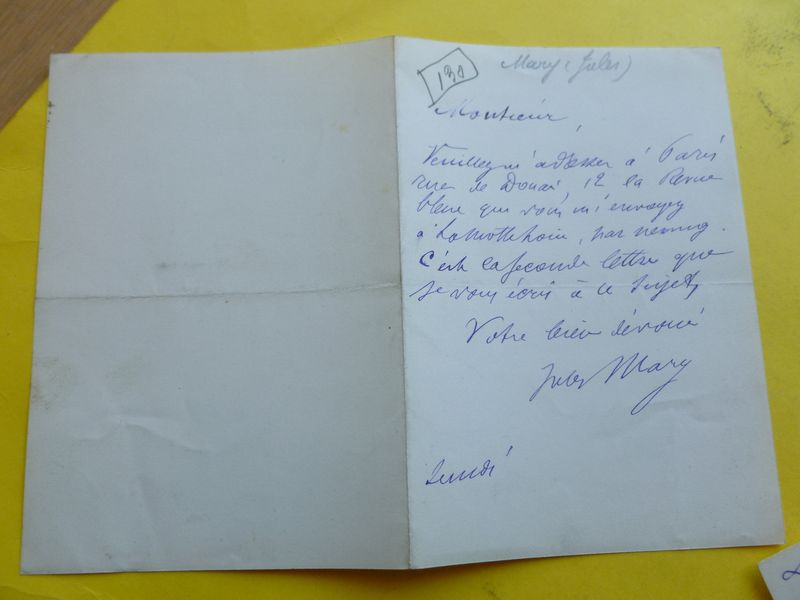 130
Mary (Jules)
Monsieur,
Veuillez m'adresser à Paris
rue de Douai, 12 la Revue
bleue que vous m'envoyez
à par
C'est la seconde lettre que
je vous écris à ce sujet,
Votre bien dévoué
Jules Mary
Lundi